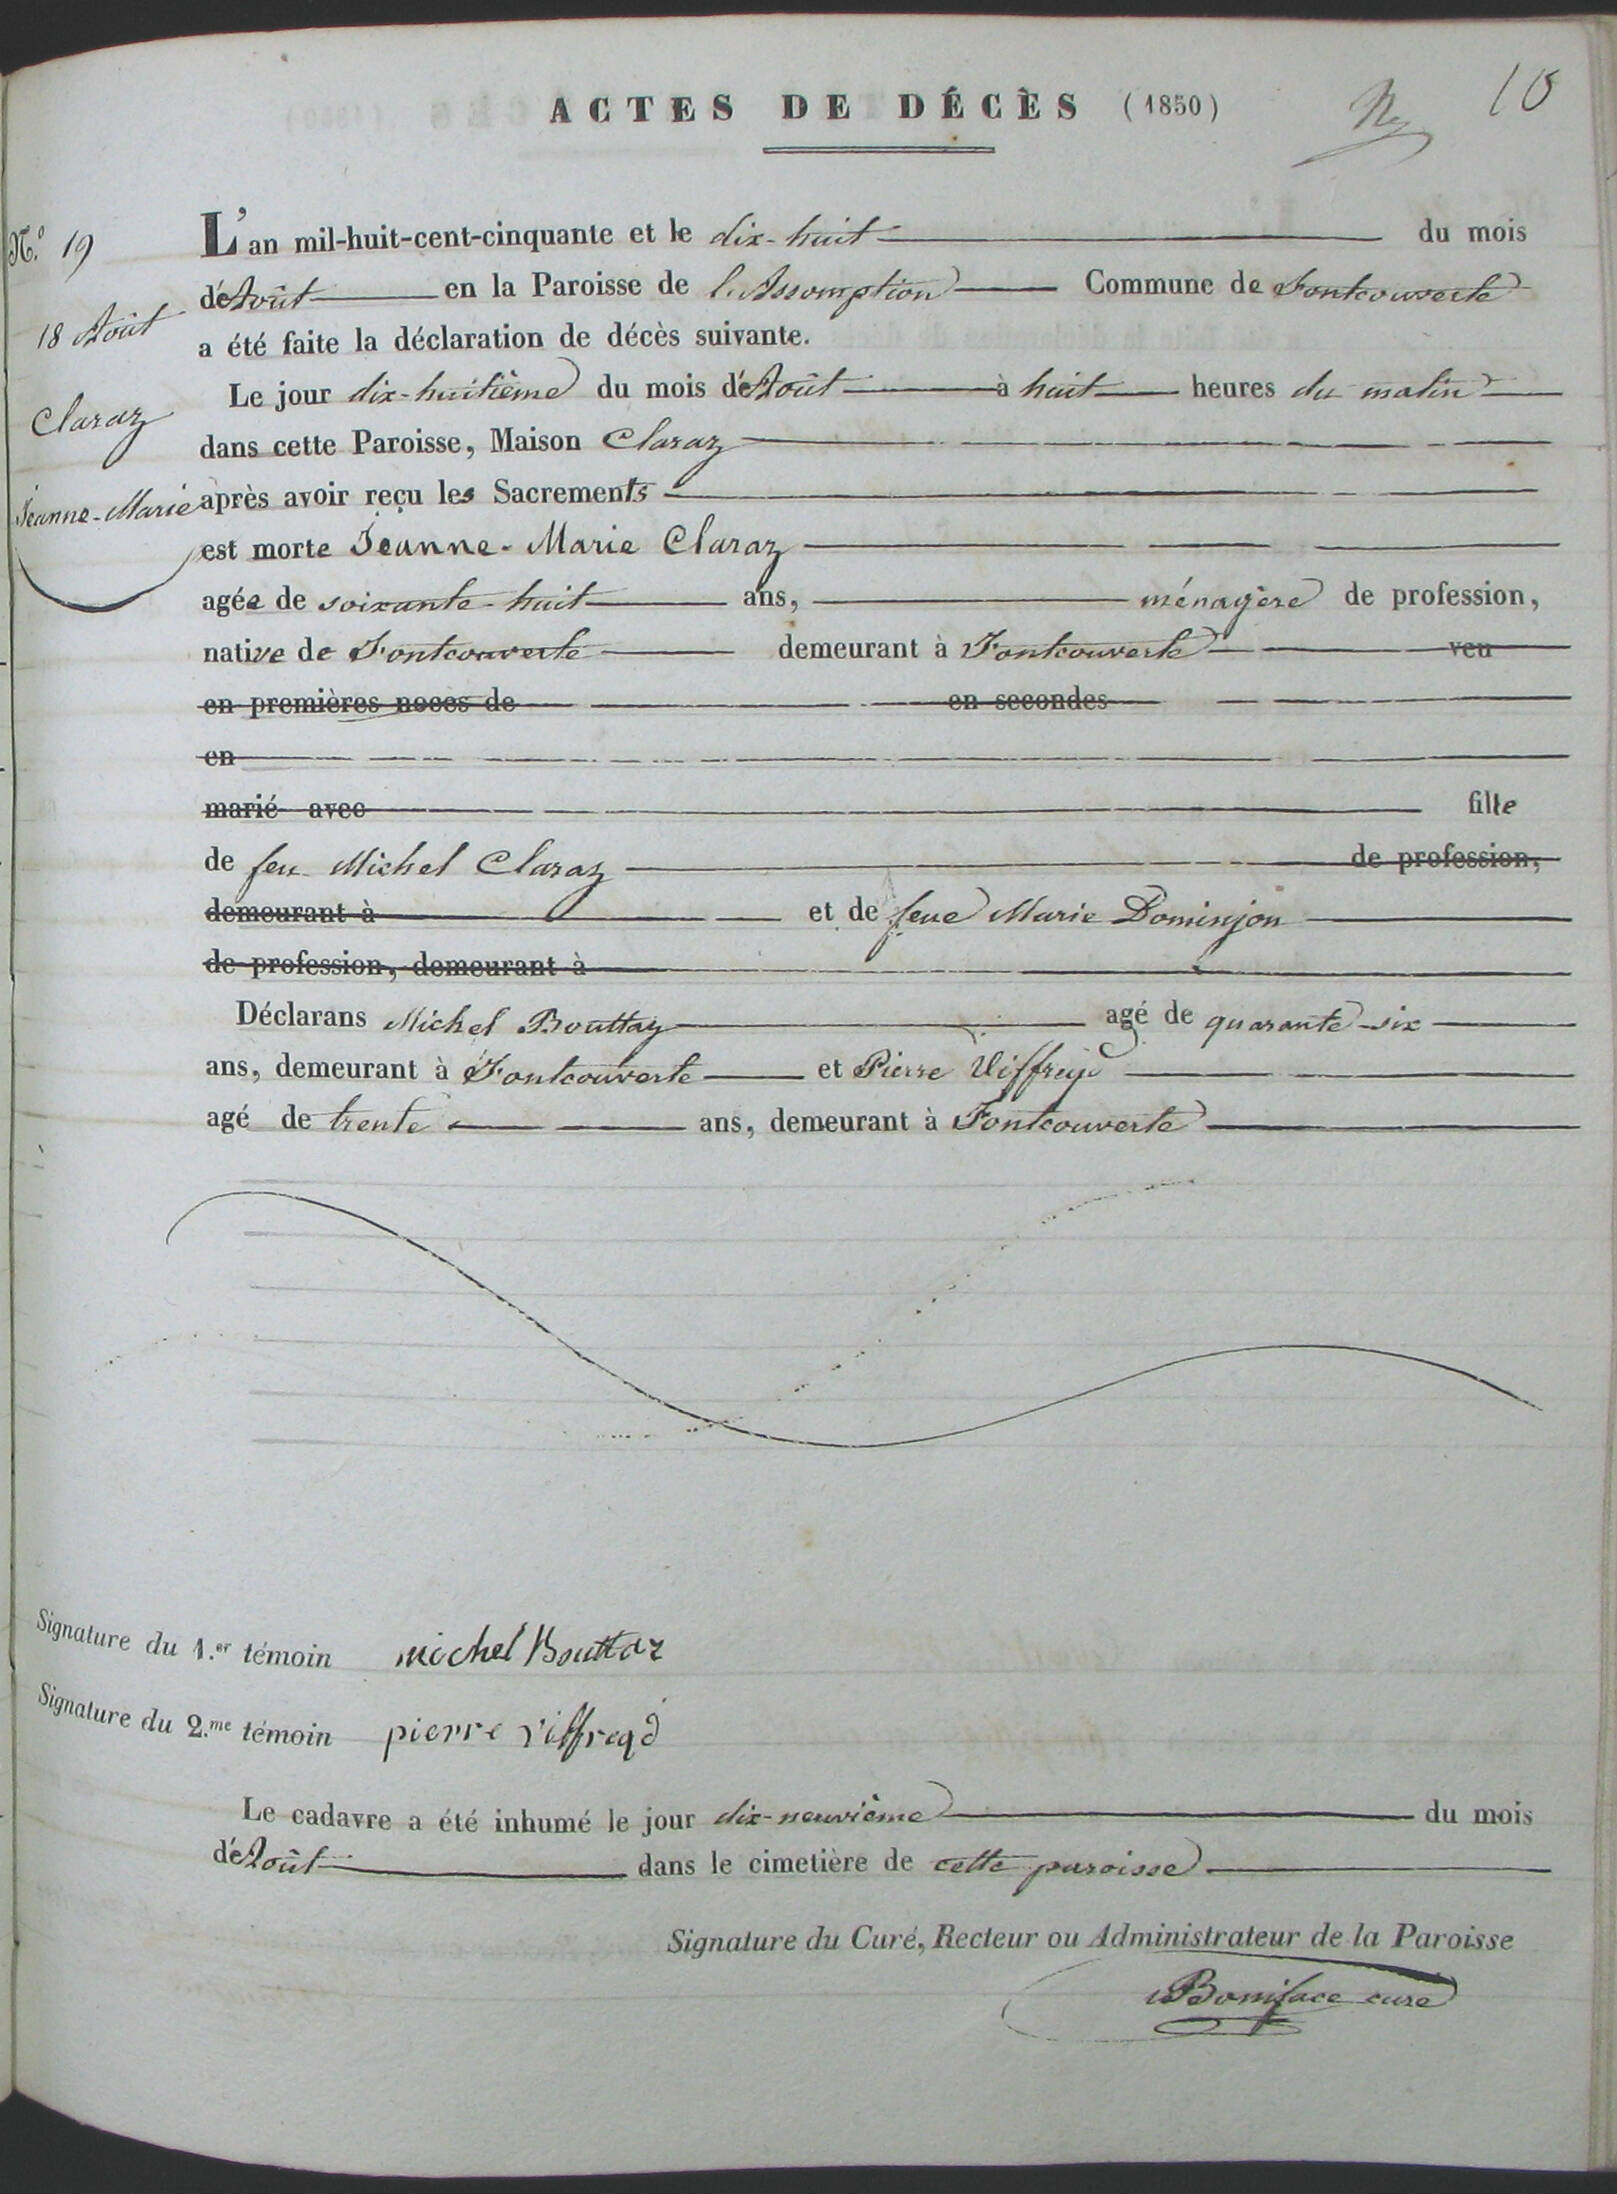 ACTES DE DÉCÈS (1850)
10
N.º 19
18 Août
Claraz
Jeanne-Marie
L'an mil-huit-cent-cinquante et le dix-huit du mois
d'Août en la Paroisse de l'Assomption Commune de Fontcouverte
a été faite la déclaration de décès suivante.
Le jour dix-huitième du mois d'Août à huit heures du matin
dans cette Paroisse, Maison Claraz
après avoir reçu les Sacrements
est morte Jeanne-Marie Claraz
agée de soixante-huit ans, ménagère de profession,
native de Fontcouverte demeurant à Fontcouverte veu
en premières noces de en secondes
en
marié avec fille
de feu Michel Claraz de profession,
demeurant à et de feue Marie Dominjon
de profession, demeurant à
Déclarans Michel Bouttaz agé de quarante-six
ans, demeurant à Fontcouverte et Pierre Viffreyd
agé de trente ans, demeurant à Fontcouverte
Signature du 1.er témoin michel Bouttaz
Signature du 2.me témoin pierre viffreyd
Le cadavre a été inhumé le jour dix-neuvième du mois
d'Août dans le cimetière de cette paroisse
Signature du Curé, Recteur ou Administrateur de la Paroisse
Boniface curé